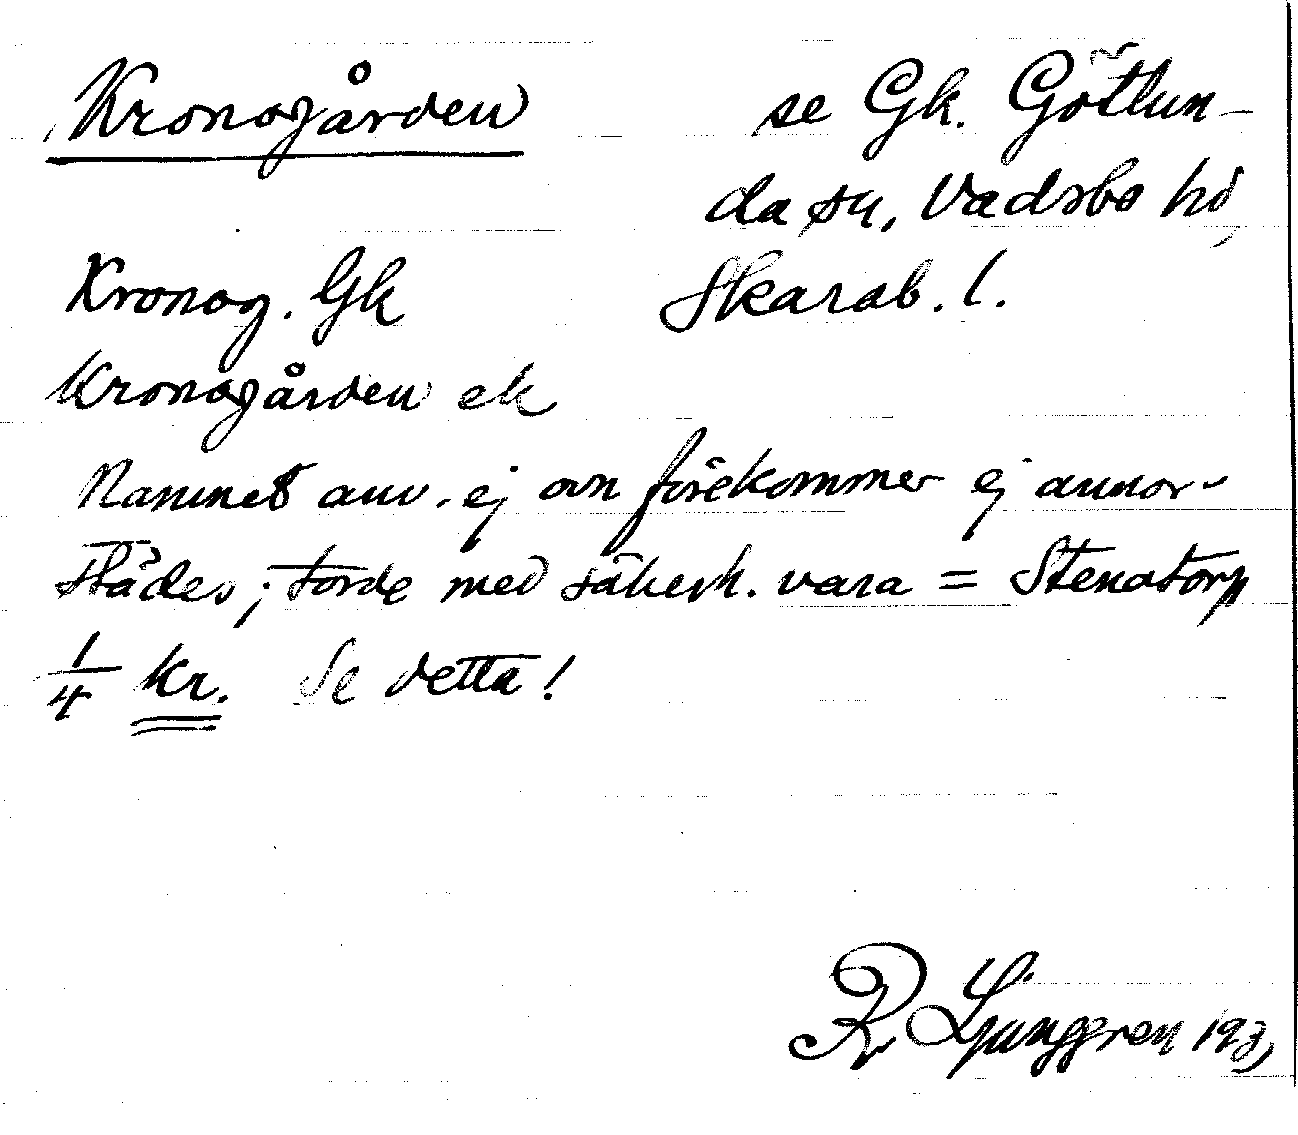 Kronogården se Gk. Götlun-
da sn, Vadsbo hd,
Kronog. Gk Skarab. l.
Kronogården ek
Namnet anv. ej om förekommer ej annor-
städes; torde med säkerh. vara = Stenatorp
1/4 kr. Se detta!
R Ljunggren